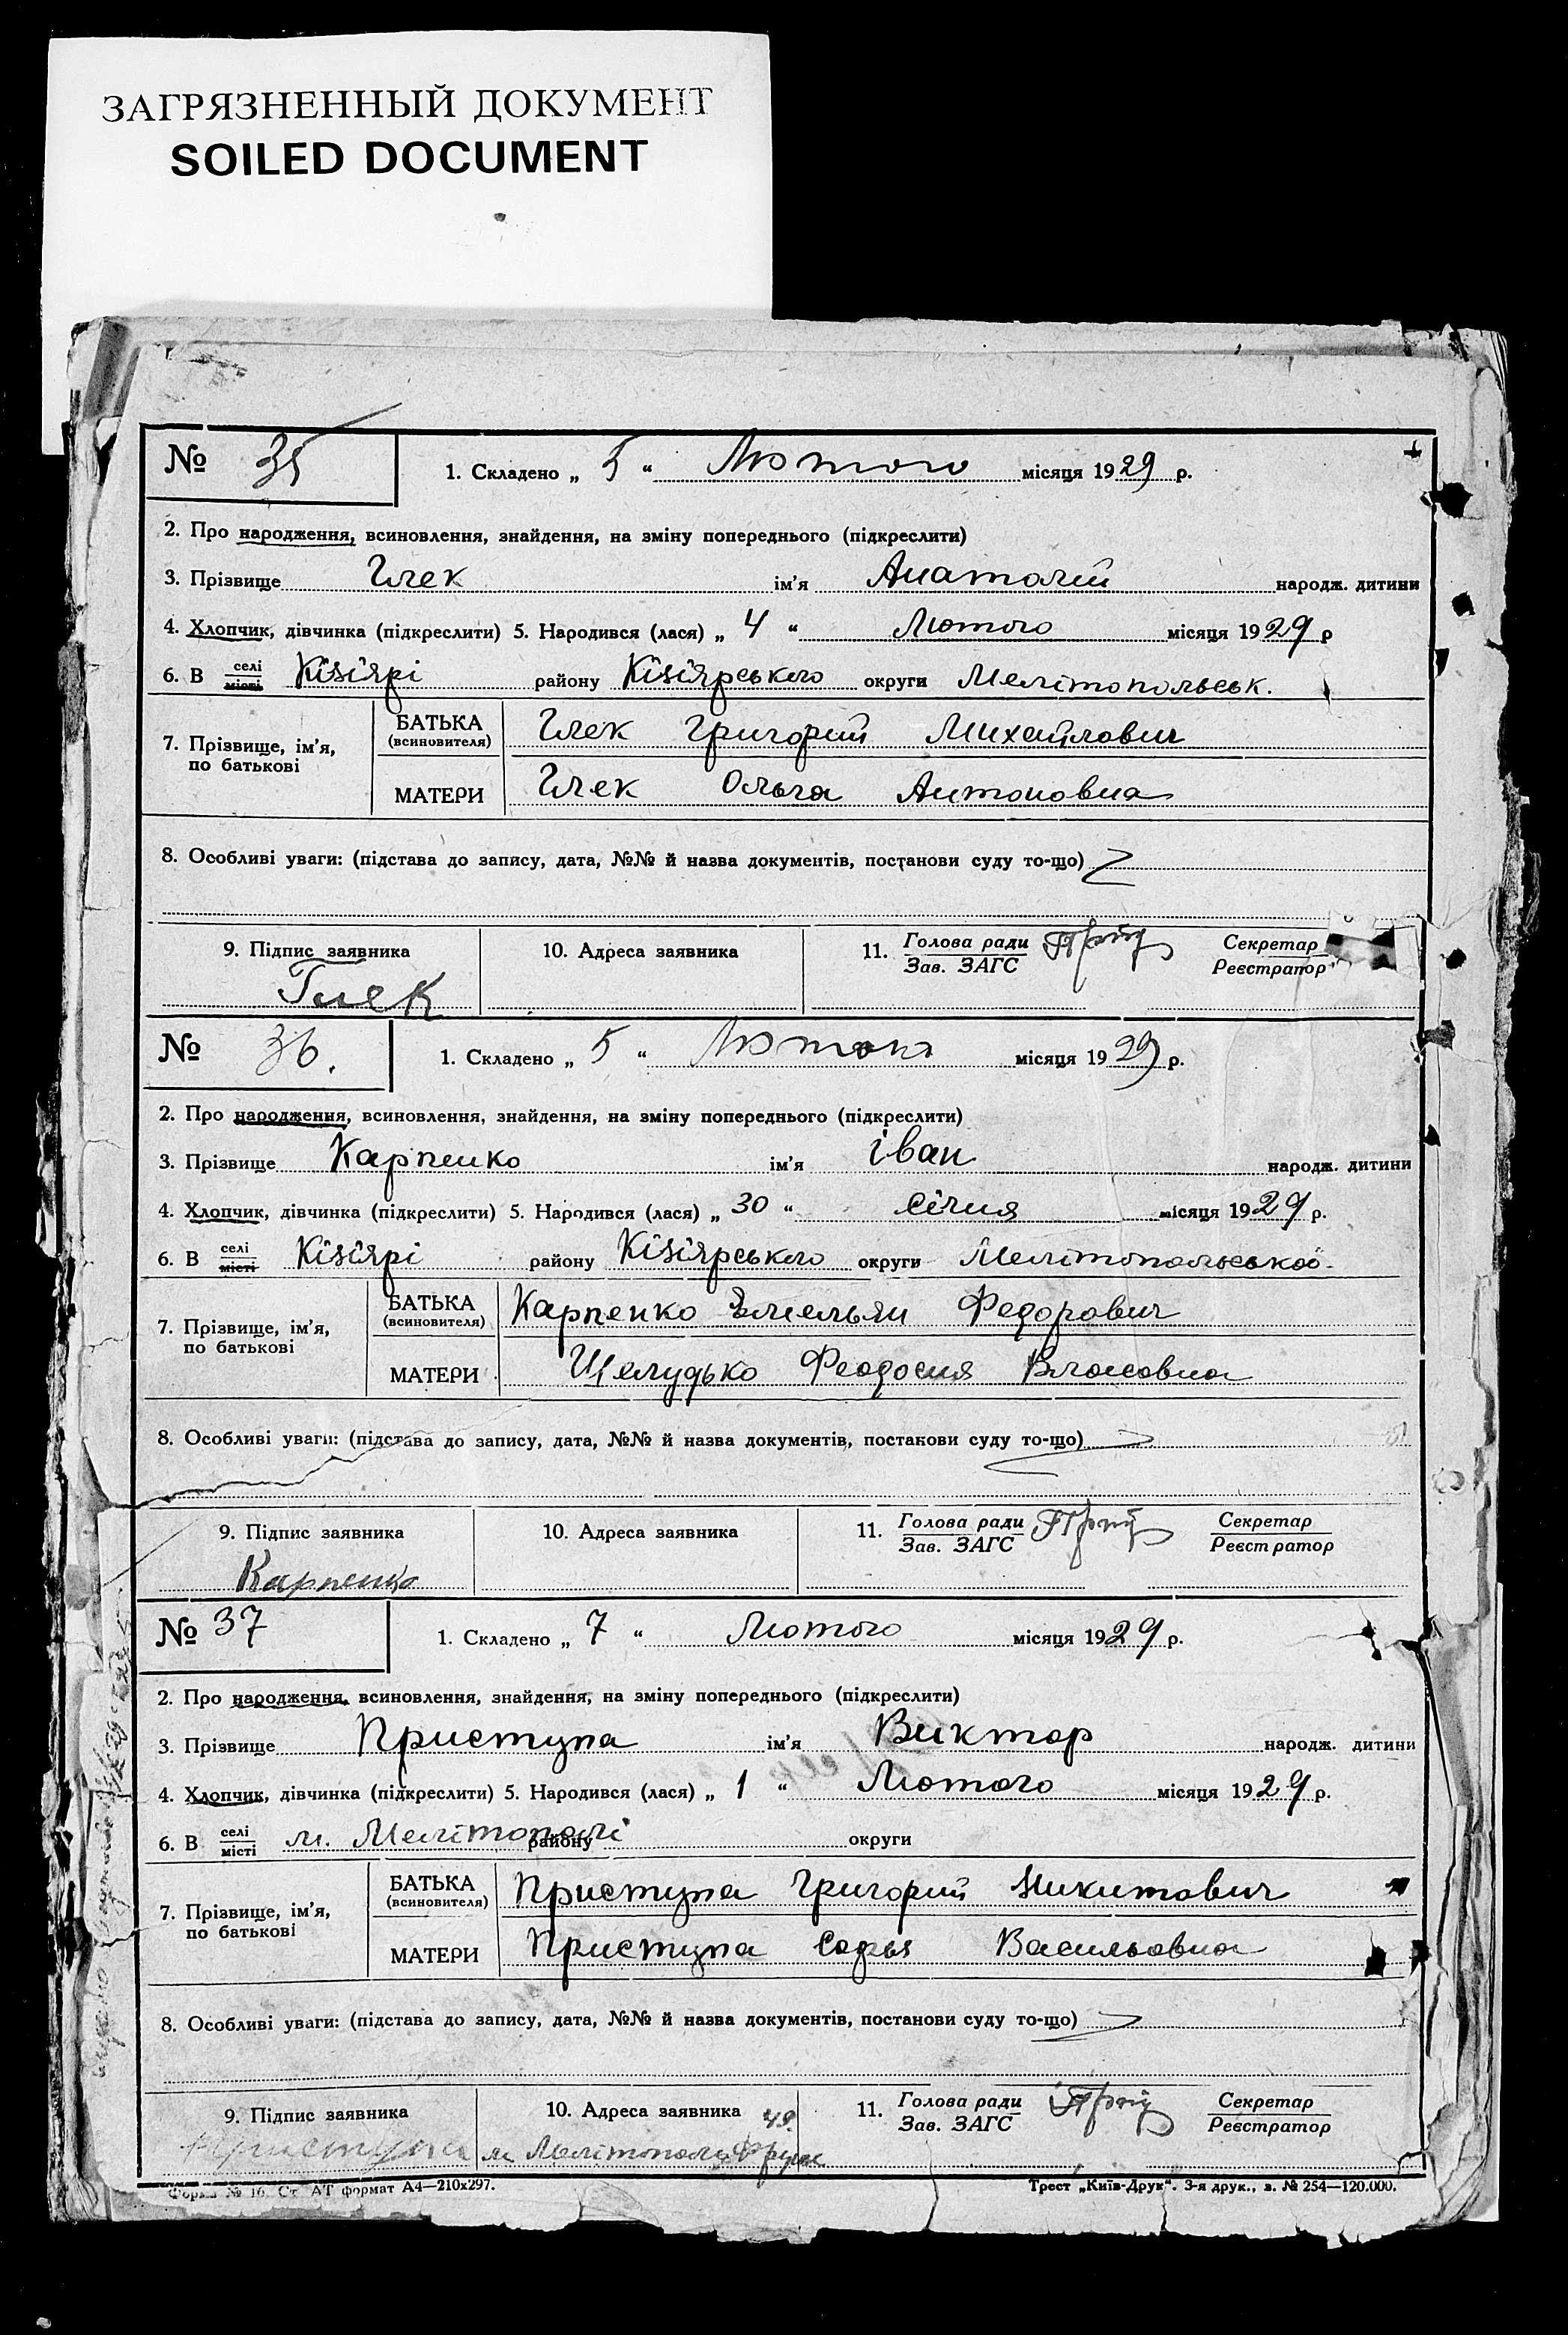 ЗАГРЯЗНЕННЫЙ ДОКУМЕНТ
SOILED DOCUMENT
№ 35 1. Складено „ 5 “ Лютого місяця 1929 р.
2. Про народження, всиновлення, знайдення, на зміну попереднього (підкреслити)
3. Прізвище Глек ім’я Анатолій народж. дитини
4. Хлопчик, дівчинка (підкреслити) 5. Народився (лася) „ 4 “ Лютого місяця 1929 р
6. В селі місті Кізіярі району Кізіярського округи Мелітопольськ.
7. Прізвище, ім’я, по батькові БАТЬКА (всиновителя) Глек Григорий Михайлович
МАТЕРИ Глек Ольга Антоновна
8. Особливі уваги: (підстава до запису, дата, №№ й назва документів, постанови суду то-що)
9. Підпис заявника 10. Адреса заявника 11. Голова ради Зав. ЗАГС Секретар Реєстратор
Глек
№ 36. 1. Складено „ 5 “ Лютого місяця 1929 р.
2. Про народження, всиновлення, знайдення, на зміну попереднього (підкреслити)
3. Прізвище Карпенко ім’я іван народж. дитини
4. Хлопчик, дівчинка (підкреслити) 5. Народився (лася) „ 30 “ січня місяця 1929 р.
6. В селі місті Кізіярі району Кізіярського округи Мелітопольської
7. Прізвище, ім’я, по батькові БАТЬКА (всиновителя) Карпенко Емельян Федорович
МАТЕРИ Щелудько Феодосия Власовна
8. Особливі уваги: (підстава до запису, дата, №№ й назва документів, постанови суду то-що)
9. Підпис заявника 10. Адреса заявника 11. Голова ради Зав. ЗАГС Секретар Реєстратор
Карпенко
№ 37 1. Складено „ 7 “ Лютого місяця 1929 р.
2. Про народження, всиновлення, знайдення, на зміну попереднього (підкреслити)
3. Прізвище Приступа ім’я Виктор народж. дитини
4. Хлопчик, дівчинка (підкреслити) 5. Народився (лася) „ 1 “ Лютого місяця 1929 р.
6. В селі місті м. Мелітополі району округи
7. Прізвище, ім’я, по батькові БАТЬКА (всиновителя) Приступа Григорий Никитович
МАТЕРИ Приступа Софья Васильовна
8. Особливі уваги: (підстава до запису, дата, №№ й назва документів, постанови суду то-що)
9. Підпис заявника 10. Адреса заявника 11. Голова ради Зав. ЗАГС Секретар Реєстратор
Приступа м. Мелітополь
Форма № 16. Ст. АТ формат А4—210х297. Трест „Київ-Друк“. 3-я друк., з. № 254—120.000.